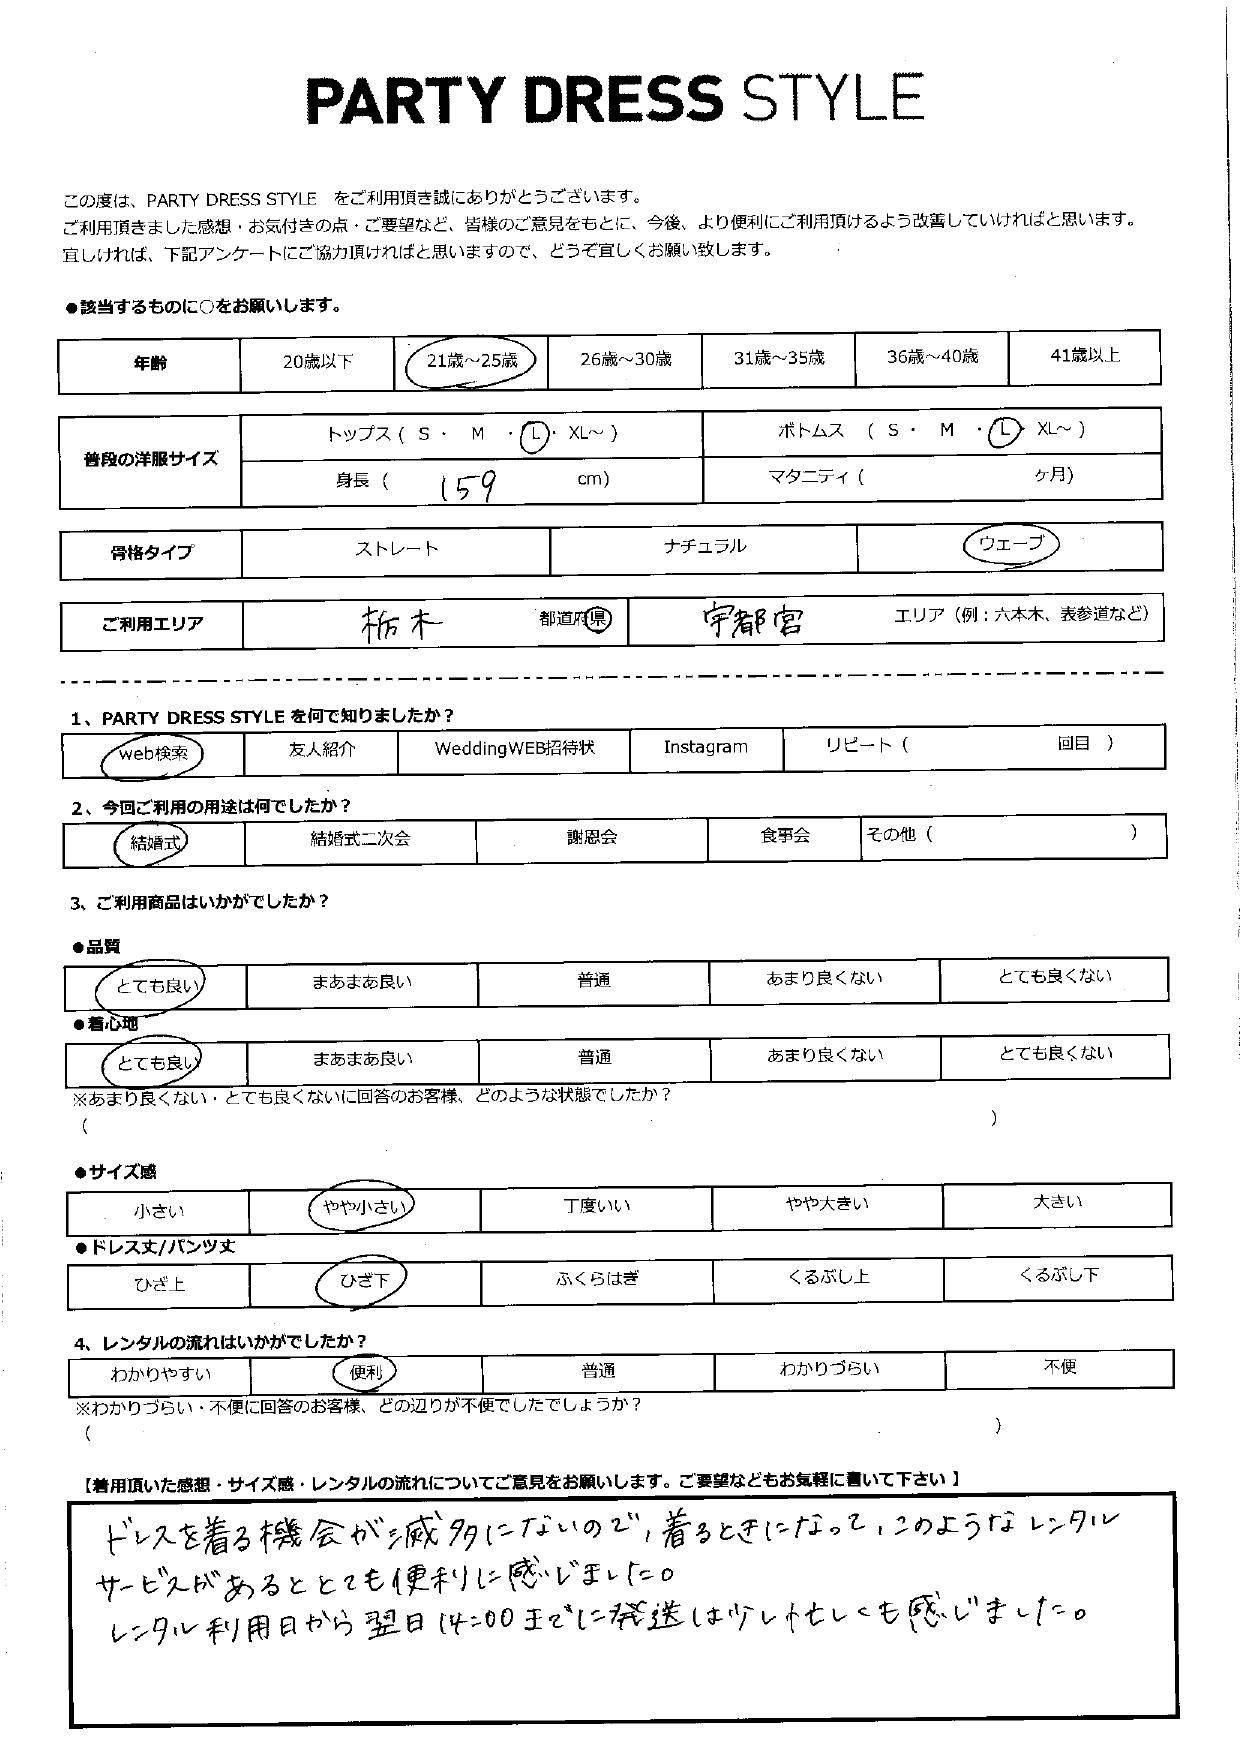 PARTY DRESS STYLE
この度は、PARTY DRESS STYLE をご利用頂き誠にありがとうございます。
ご利用頂きました感想・お気付きの点・ご要望など、皆様のご意見をもとに、今後、より便利にご利用頂けるよう改善していければと思います。
宜しければ、下記アンケートにご協力頂ければと思いますので、どうぞ宜しくお願い致します。
●該当するものに○をお願いします。
年齢 20歳以下 21歳～25歳 26歳～30歳 31歳～35歳 36歳～40歳 41歳以上
普段の洋服サイズ
トップス ( S ・ M ・ L ・ XL～ ) ボトムス ( S ・ M ・ L ・ XL～ )
身長 ( 159 cm) マタニティ ( ケ月)
骨格タイプ ストレート ナチュラル ウェーブ
ご利用エリア 栃木 都道府県 宇都宮 エリア（例：六本木、表参道など）
1、PARTY DRESS STYLE を何で知りましたか？
web検索 友人紹介 WeddingWEB招待状 Instagram リピート ( 回目 )
2、今回ご利用の用途は何でしたか？
結婚式 結婚式二次会 謝恩会 食事会 その他 ( )
3、ご利用商品はいかがでしたか？
●品質
とても良い まあまあ良い 普通 あまり良くない とても良くない
●着心地
とても良い まあまあ良い 普通 あまり良くない とても良くない
※あまり良くない・とても良くないに回答のお客様、どのような状態でしたか？
( )
●サイズ感
小さい やや小さい 丁度いい やや大きい 大きい
●ドレス丈/パンツ丈
ひざ上 ひざ下 ふくらはぎ くるぶし上 くるぶし下
4、レンタルの流れはいかがでしたか？
わかりやすい 便利 普通 わかりづらい 不便
※わかりづらい・不便に回答のお客様、どの辺りが不便でしたでしょうか？
( )
【着用頂いた感想・サイズ感・レンタルの流れについてご意見をお願いします。ご要望などもお気軽に書いて下さい 】
ドレスを着る機会が滅多にないので、着るときになって、このようなレンタル
サービスがあるととても便利に感じました。
レンタル利用日から翌日14:00までに発送は少し忙しくも感じました。